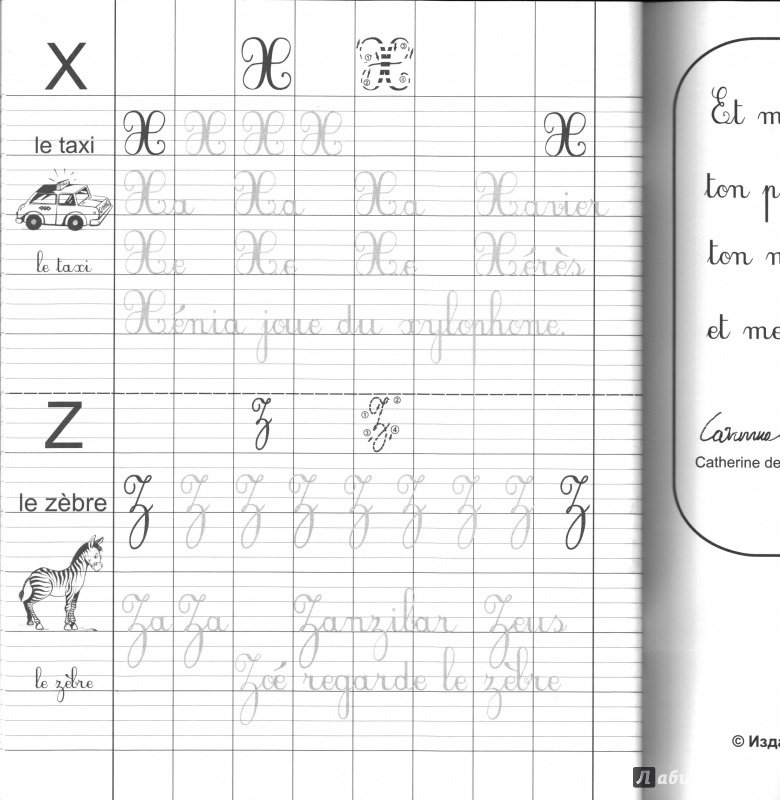 X X X
le taxi X X X X X
Xa Xa Xa Xavier
le taxi Xe Xe Xe Xérès
Xénia joue du xylophone.
Z Z Z
① ② ③ ④
le zèbre Z Z Z Z Z Z Z Z Z
Za Za Zanzibar Zeus
le zèbre Zoé regarde le zèbre
Et m
ton p
ton
et me
Catherine de
© Изда
Лаби